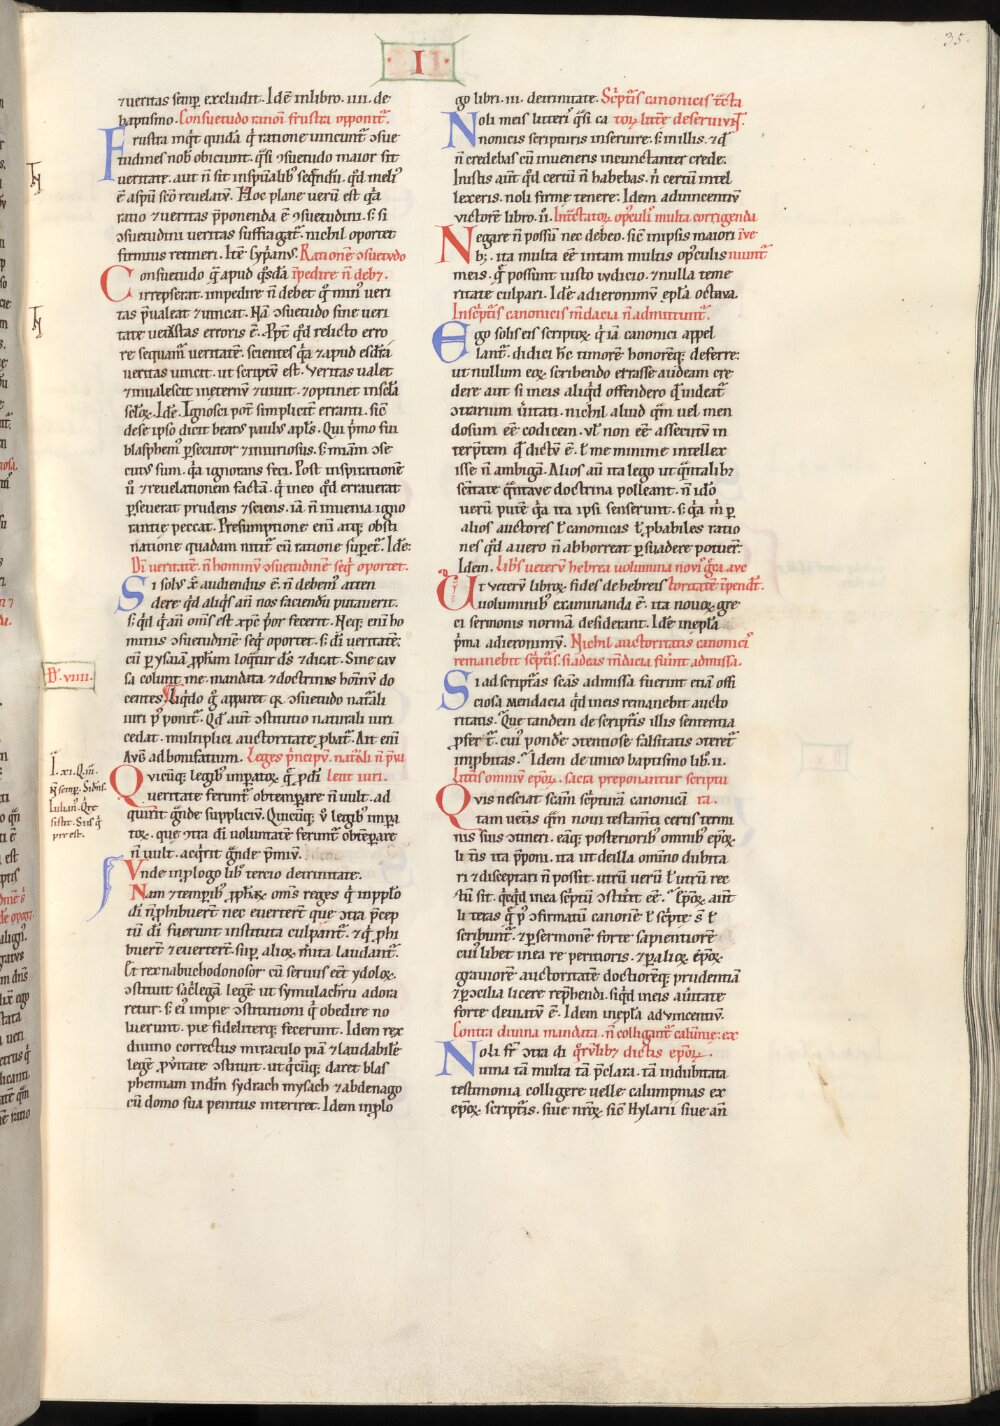 35.
·I·
⁊ veritas semp̄ excludit. Idē in libro. iiii. de
baptismo. Consuetudo rationi frustra opponit̄.
Frustra inq̇t quidā q̇ ratione vincunt̄ ↄsue
tudines nob̄ obiciunt. q̄si ↄsuetudo maior sit
veritate. aut n̄ sit in sp̄ualib; seq̄ndū. q̇d meli⁹
ē a sp̄u sc̄o revelatv̄. Hoc plane verū est q̇a
ratio ⁊ veritas p̄ponenda ē ↄsuetudini. s; si
ↄsuetudini veritas suffragat̄. nichil oportet
firmius retineri. Itē Cyp̄anvs. Rationē ↄsuetvdo
Consuetudo q̄ apud q̇sdā īpedire n̄ deb;.
irrepserat. impedire n̄ debet q̇ min⁹ veri
tas p̄ualeat ⁊ vincat. Nā ↄsuetudo sine veri
tate vetustas erroris ē. Ppt̄ q̇d relicto erro
re sequam̄ veritatē. scientes q̇a ⁊ apud esdrā
veritas vincit. ut scriptv̄ est. Veritas valet
⁊ invalescit in eternv̄ ⁊ vivit. ⁊ optinet in sc̄la
sc̄loꝝ. Idē. Ignosci pot̄ simplicit̄ erranti. sic̄
de se ipso dicit beat⁹ paulus apl̄s. Qui p̄mo fui
blasphem⁹ p̄secutor ⁊ iniuriosus. s; miam̄ ↄse
cut⁹ sum. q̇a ignorans feci. Post inspirationē
v̄ ⁊ revelationem factā. q̇ in eo q̇d erraverat
p̄severat prudens ⁊ sciens. iā n̄ in uenia igno
rantię peccat. Presumptione enī atq; obsti
natione quadam nitit̄ cū ratione supet̄. Idē:
Dī veritatē. n̄ hominv̄ ↄsuetudinē seq̇ oportet.
Si solvs xp̄c audiendus ē. n̄ debem⁹ atten
dere q̇d aliq̇s an̄ nos faciendū putaverit.
s; q̇d q̇ an̄ om̄s est xp̄c p̄or fecerit. Neq; enī ho
minis ↄsuetudinē seq̇ oportet. s; dī veritatē.
cū p ysaiā p̄pham loq̇tur dn̄s ⁊ dicat. Sine cav
sa colunt me. mandata ⁊ doctrinas hom̄v̄ do
centes. Liq̇do g̊ apparet qꝛ ↄsuetudo nat̄ali
iuri p⁹ponit̄. Qd̄ aut̄ ↄstitutio naturali iuri
cedat. multiplici auctoritate p̄bat̄. Ait enī
Avḡ ad bonifatium. Leges p̄ncipv̄. nat̄ali n̄ p̄va
Qvicūq; legib; impatoꝝ. q̄ p̄ dī lent iuri.
veritate ferunt̄ obtemp̄are n̄ uult. ad
quirit g̊nde suppliciv̄. Quicūq; v̄ legib; impa
toꝝ. que ↄtra dī voluntatē ferunt̄ obtēp̄are
n̄ uult. acq̇rit g̊nde p̄miv̄.
Vnde in plogo lib; tercio de trinitate.
Nam ⁊ tempib; p̄phaꝝ. om̄s reges q̇ in pp̄lo
dī n̄ phibuert̄ nec evertert̄ que ↄtra p̄cep
tū dī fuerunt instituta culpant̄. ⁊ q̇ phi
buert̄ ⁊ evertert̄. sup̄ alioꝝ. m̄ita laudant̄.
Et rex nabuchodonosor cū servus eēt ydoloꝝ.
ↄstituit sac̄legā legē ut symulachrū adora
retur. s; ei⁹ impie ↄstitutioni q̇ obedire no
luerunt. pie fideliterq; fecerunt. Idem rex
divino correctus miraculo piā ⁊ laudabilē
legē p̄ v̄itate ↄstituit. ut q̇cūq; daret blas
phemiam in dm̄ sydrach mysach ⁊ abdenago
cū domo sua penitus interiret. Idem in plo
D̄. viiii.
I. xi. Q. iii.
Iulian⁹. Qre
go libri. iii. de trinitate. Sc̄pt̄is canonicis t̄c̄ta
Noli meis litteris q̄si ca toꝝ litt̄e deserviv̄t.
nonicis scripturis inservire. s; in illis. ⁊ q̇d
n̄ credebas cū inveneris incunctanter crede.
In istis aut̄ q̇d certū n̄ habebas. n̄ certū intel
lexeris. noli firme tenere. Idem ad vincentiv̄
victorē libro. ii. In t̄ctatoꝝ op̄culis multa corrigenda
Negare n̄ possū nec debeo. sic̄ in ipsis maiori īve
b;. ita multa eē in tam multis op̄culis niunt̄
meis. q̄ possunt iusto ivdicio. ⁊ nulla teme
ritate culpari. Idē ad ieronimv̄ epl̄a octava.
In sc̄pt̄is canonicis m̄dacia n̄ admittunt̄.
Ego solis eis scriptoꝝ. q̇ iā canonici appel
lant̄. didici h̄c timorē honorēq; deferre:
ut nullum eoꝝ scribendo errasse audeam cre
dere. aut si in eis aliq̇d offendero q̇d videat̄
ↄtrarium v̄itati. nichil aliud q̄m vel men
dosum eē codicem. vl̄ non eē assecutv̄ in
terp̄tem q̇d dictv̄ ē. l̄ me minime intellex
isse n̄ ambigā. Alios aū ita lego ut q̄ntalib;
sc̄itate q̄ntave doctrina polleant. n̄ id̊o
verū putē q̇a ita ipsi senserunt. s; q̇a m̄ p
alios auctores l̄ canonicas l̄ p̄babiles ratio
nes q̇d a vero n̄ abhorreat p̄suadere potuer̄.
Idem. Lib̄s veterv̄ hebrea volumina novis ḡca avc
Ut veterv̄ libroꝝ fides de hebreis toritatē īpendt̄.
voluminib; examinanda ē. ita novoꝝ gre
ci sermonis normā desiderant. Idē in epl̄a
p̄ma ad ieronimv̄. Nichil auctoritatis canonicis
remanebit sc̄pt̄is. si ad eas m̄dacia fūint admissa.
Si ad script̄as sc̄as admissa fuerint etiā offi
ciosa mendacia q̇d in eis remanebit aucto
ritatis. Que tandem de script̄is illis sententia
pferet̄. cui⁹ ponde⁹ ↄtentiose falsitatis ↄteret̄
imp̄bitas. Idem de unico baptismo lib. ii.
Litt̄is omnivm ep̄oꝝ. sacra preponantur scriptu
Qvis nesciat sc̄am sc̄pturā canonicā ra.
tam veteris q̄m novi testamti certis termi
nis suis ↄtineri. eāq; posteriorib; omnib; ep̄oꝝ.
lit̄is ita p̄poni. ita ut de illa om̄ino dubita
ri ⁊ disceptari n̄ possit. utrū verū l̄ utrū rec
tū sit. q̇cq̇d in ea sc̄ptū ↄstit̄it eē. Ep̄oꝝ aut̄
litteras q̄ p⁹ ↄfirmatū canonē l̄ sc̄pte s̄ l̄
scribunt̄. ⁊ p sermonē forte sapientiorē
cui⁹libet in ea re peritioris. ⁊ p alioꝝ ep̄oꝝ.
graviorē auctoritatē doctiorēq; prudentiā
⁊ p ↄcilia licere rep̄hendi. siq̇d in eis a v̄itate
forte deviatv̄ ē. Idem in epl̄a ad vincentiv̄.
Contra divina mandata. n̄ colligant̄ calūnie. ex
Noli fr̄ ↄtra di q̇rv̄lib; dictis ep̄oꝝ.
vina tā multa tā p̄clara. tā indubitata
testimonia colligere velle calumpnias ex
ep̄oꝝ. script̄is. sive nr̄oꝝ. sic̄ Hylarii sive an̄